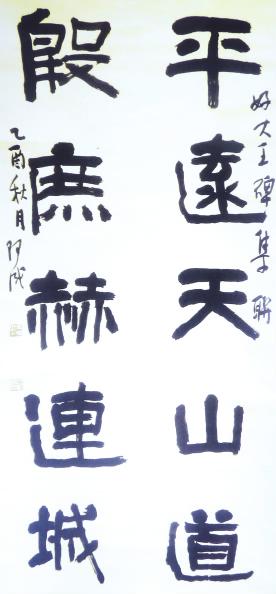 平遠天山道
好大王碑集聯
殷庶赫連城
乙酉秋月